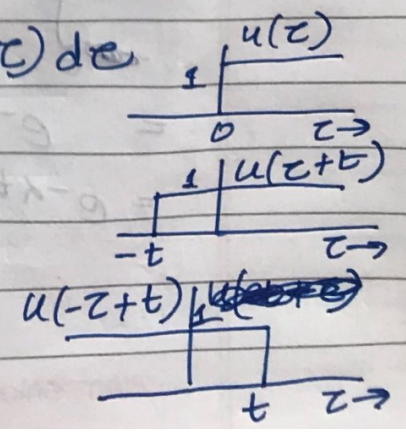 τ) dτ
u(τ)
1
0 τ→
1 u(τ+t)
-t τ→
u(-τ+t) 1
t τ→